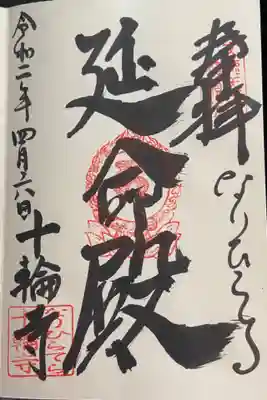 奉拝
なりひら
延命殿
令和二年四月六日 十輪寺